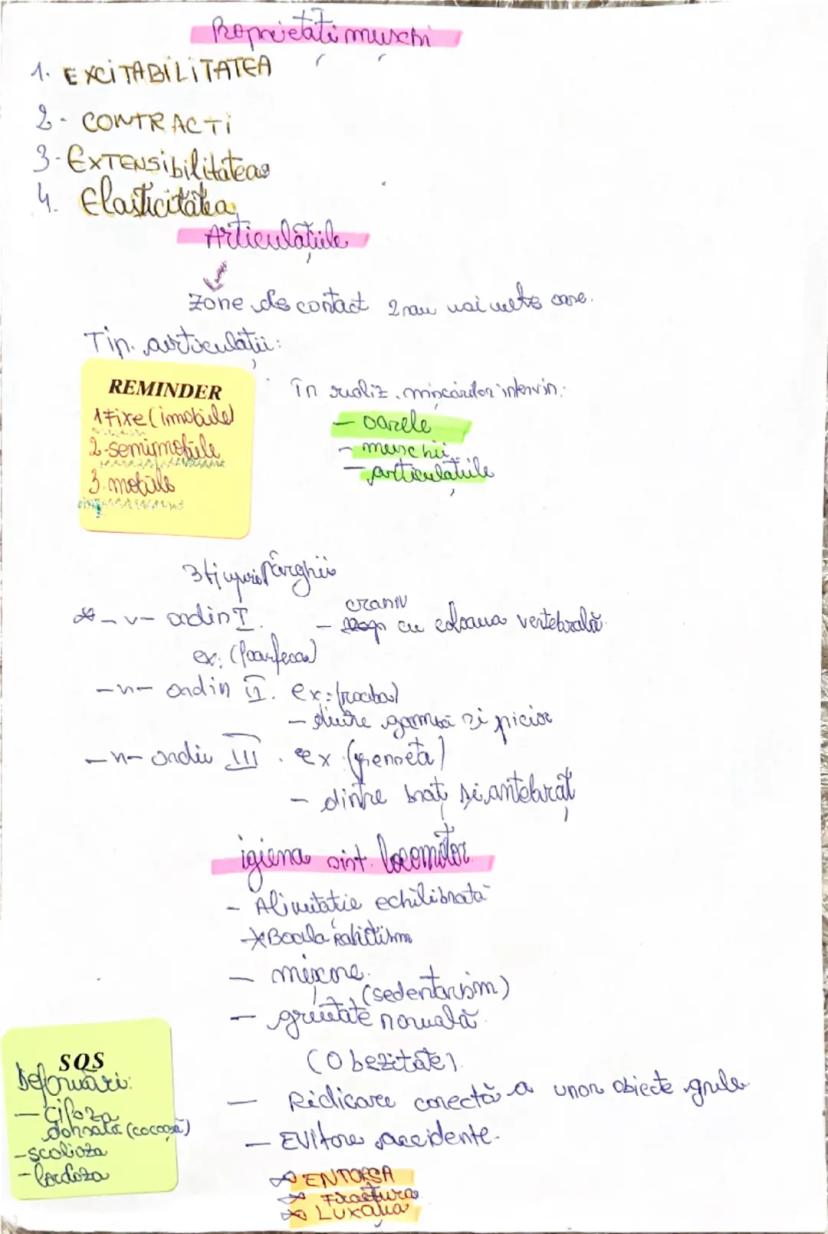 Proprietăți mușchi
1. EXCITABILITATEA
2. CONTRACTI
3. EXTENSIBILITATEA
4. Elasticitatea
Articulațiile
Zone de contact 2 sau mai multe oase.
Tip. articulații:
REMINDER
1 Fixe (imobile)
2 semimobile
3. mobile
În realiz. mișcărilor intervin:
- oasele
- mușchii
- articulațiile
3 tipuri pârghii
* -n- ordin I. - craniu cu coloana vertebrală
ex: (foarfeca)
-n- ordin II. ex: (roaba)
- dintre gambă și picior
-n- ordin III. ex (penseta)
- dintre braț și antebraț
igiena sist. locomotor
- Alimentație echilibrată
* Boala Rahitism
- mișcare
(sedentarism)
- greutate normală
(Obezitate)
- Ridicare corectă a unor obiecte grele
- Evitare accidente.
ENTORSA
Fractura
LUXAȚIA
SQS
Deformări:
- Cifoza
dorsală (cocoașă)
- scolioza
- lordoza